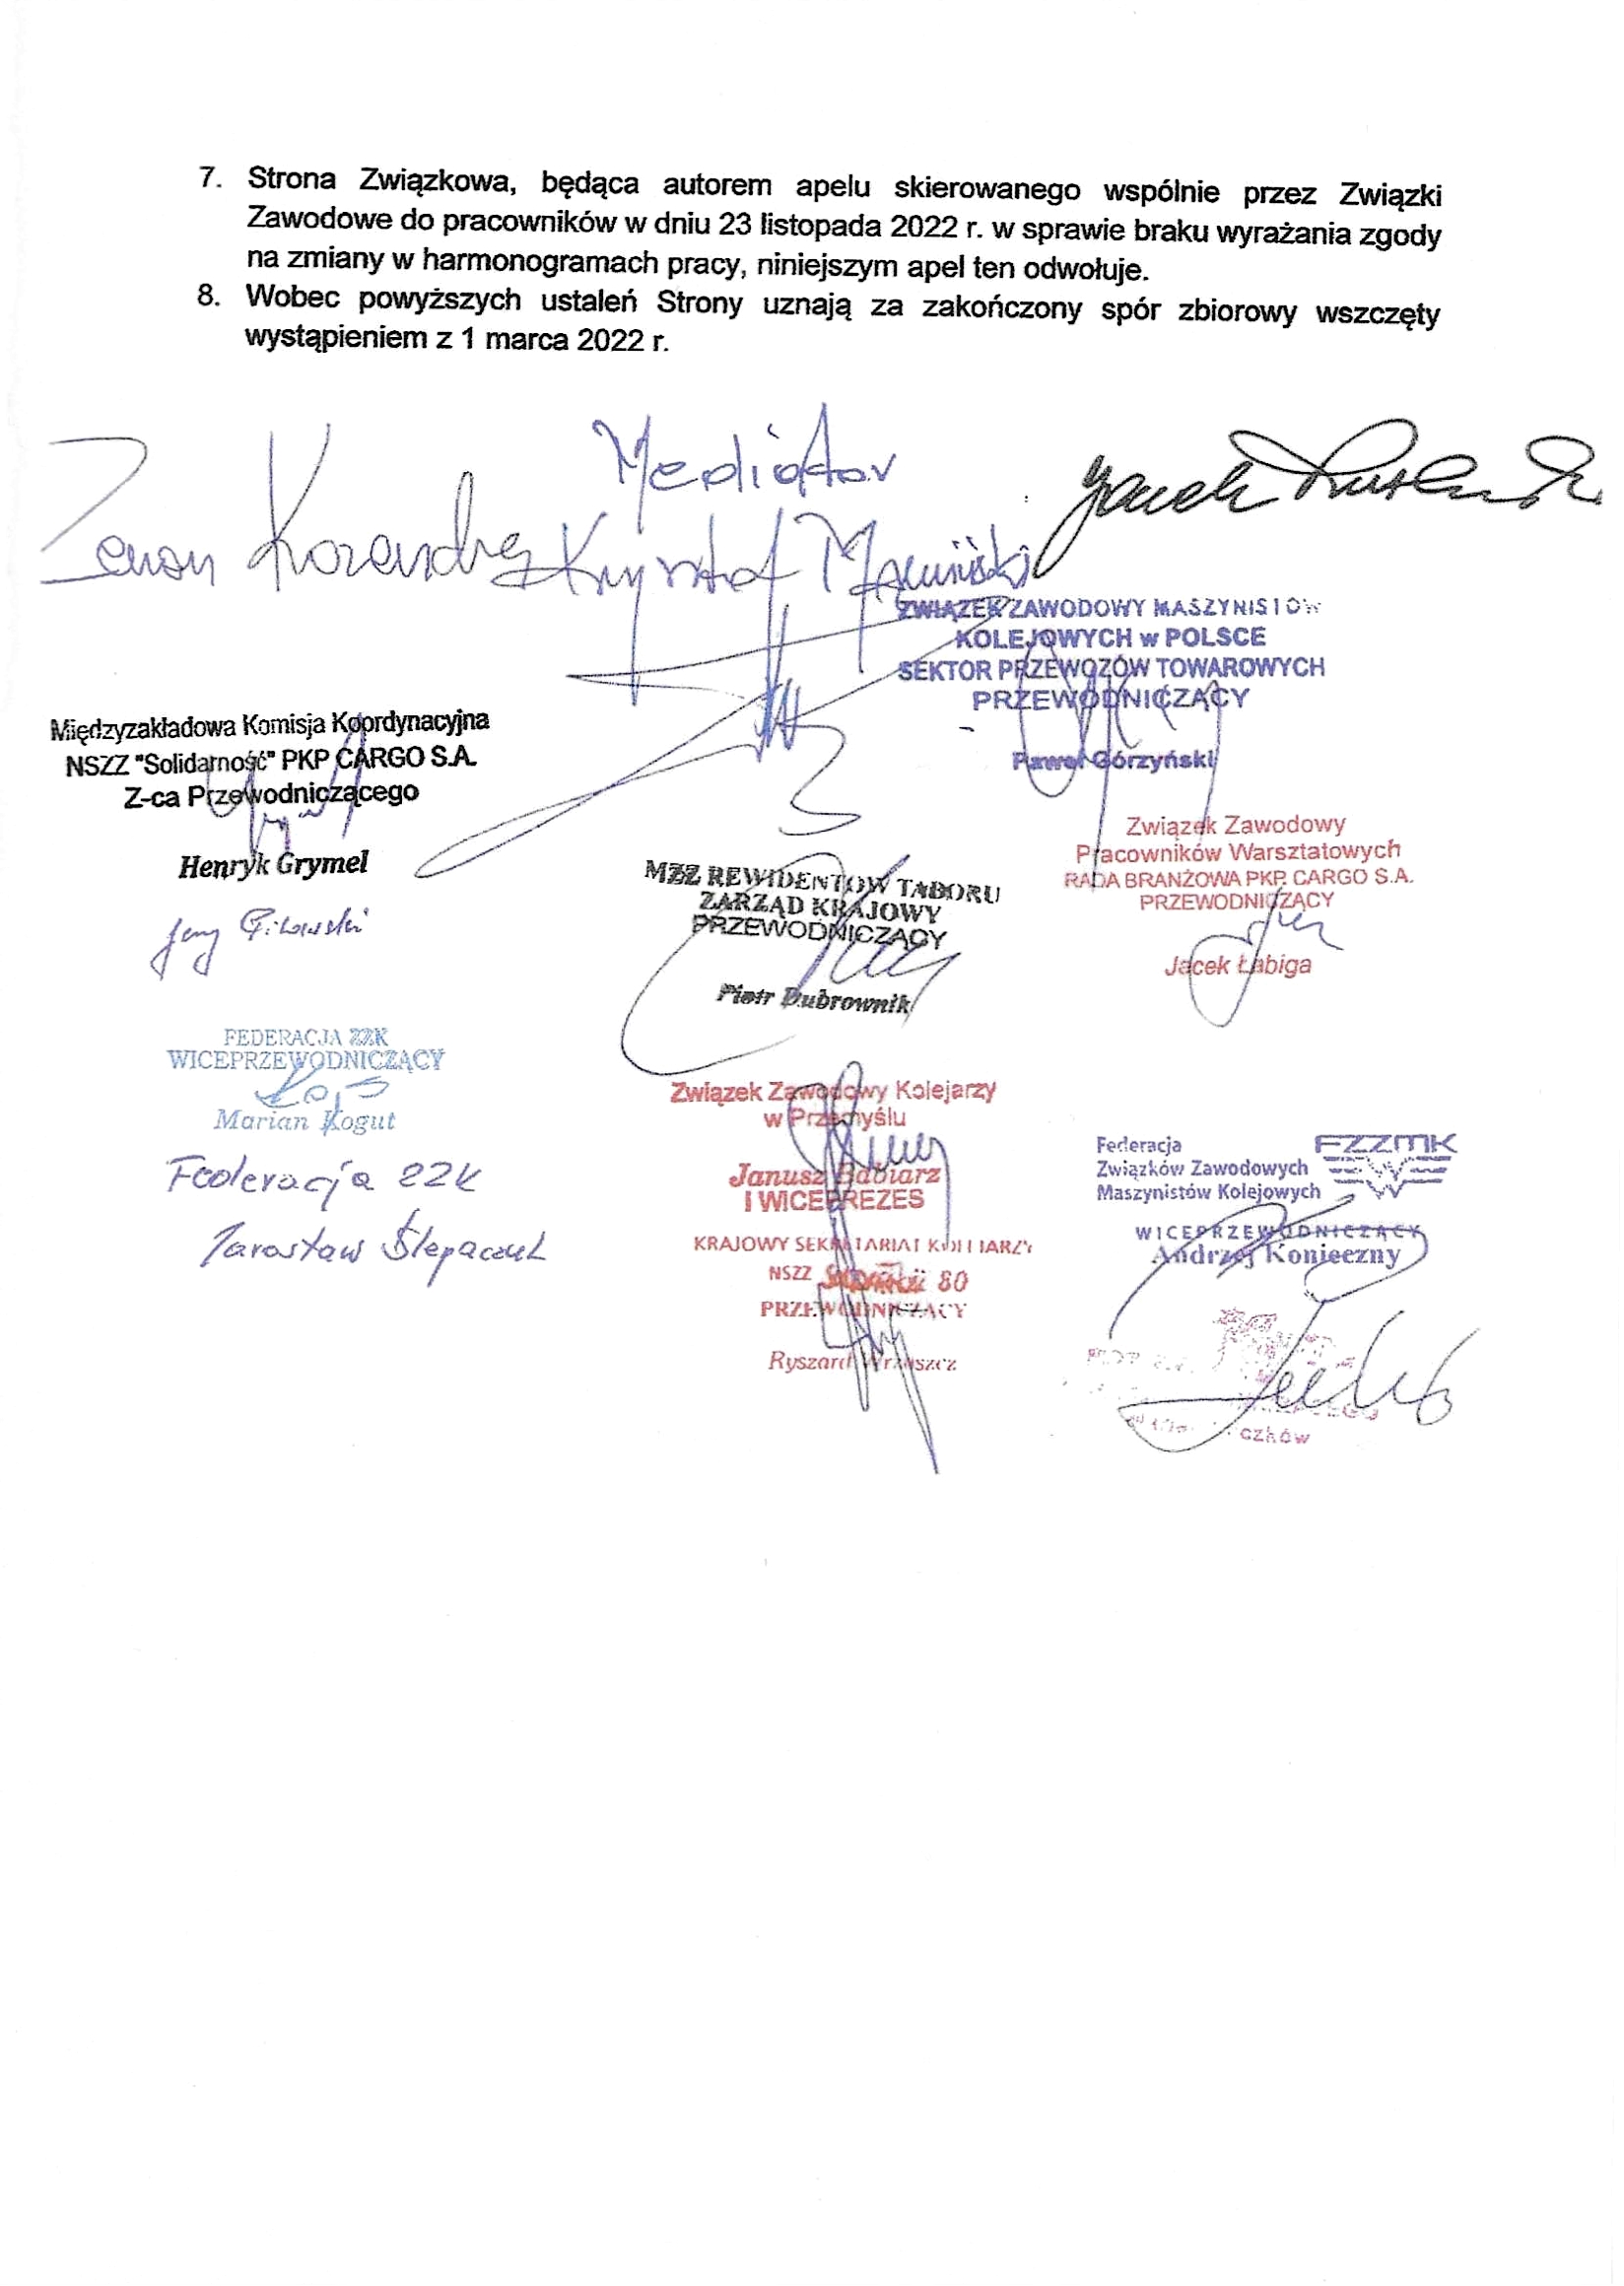 7. Strona Związkowa, będąca autorem apelu skierowanego wspólnie przez Związki
Zawodowe do pracowników w dniu 23 listopada 2022 r. w sprawie braku wyrażania zgody
na zmiany w harmonogramach pracy, niniejszym apel ten odwołuje.
8. Wobec powyższych ustaleń Strony uznają za zakończony spór zbiorowy wszczęty
wystąpieniem z 1 marca 2022 r.
Mediator
Zenon Krzysztof
Jacek
ZWIĄZEK ZAWODOWY MASZYNISTÓW
KOLEJOWYCH w POLSCE
SEKTOR PRZEWOZÓW TOWAROWYCH
PRZEWODNICZĄCY
Paweł Górzyński
Międzyzakładowa Komisja Koordynacyjna
NSZZ "Solidarność" PKP CARGO S.A.
Z-ca Przewodniczącego
Henryk Grymel
Związek Zawodowy
Pracowników Warsztatowych
RADA BRANŻOWA PKP CARGO S.A.
PRZEWODNICZĄCY
Jacek Łabiga
MZZ REWIDENTÓW TABORU
ZARZĄD KRAJOWY
PRZEWODNICZĄCY
Piotr Dubrownik
FEDERACJA ZZK
WICEPRZEWODNICZĄCY
Marian Kogut
Federacja ZZK
Jarosław
Związek Zawodowy Kolejarzy
w Przemyślu
Janusz Babiarz
I WICEPREZES
KRAJOWY SEKRETARIAT KOLEJARZY
NSZZ Solidarność 80
PRZEWODNICZĄCY
Ryszard Wrzaszcz
Federacja FZZMK
Związków Zawodowych
Maszynistów Kolejowych
WICEPRZEWODNICZĄCY
Andrzej Konieczny